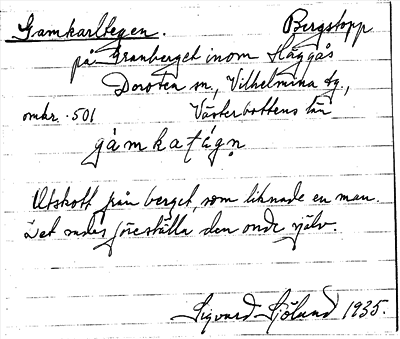 Gamkarltegen. Bergstopp
på Granberget inom Häggås
Dorotea sn, Vilhelmina tg.,
områ. 501 Västerbottens län
Utskott från berget, som liknade en man.
Det sades föreställa den onde själv.
Sigvard Sjölund 1935.